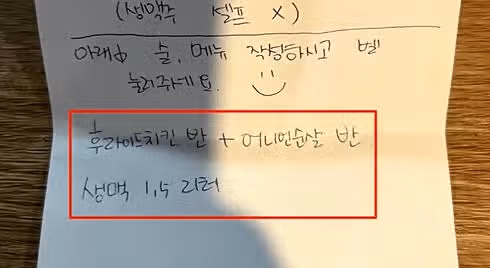 (생맥주 셀프 X)
아래에 술, 메뉴 작성하시고 벨
눌러주세요.
후라이드치킨 반 + 어니언순살 반
생맥 1,5 리터